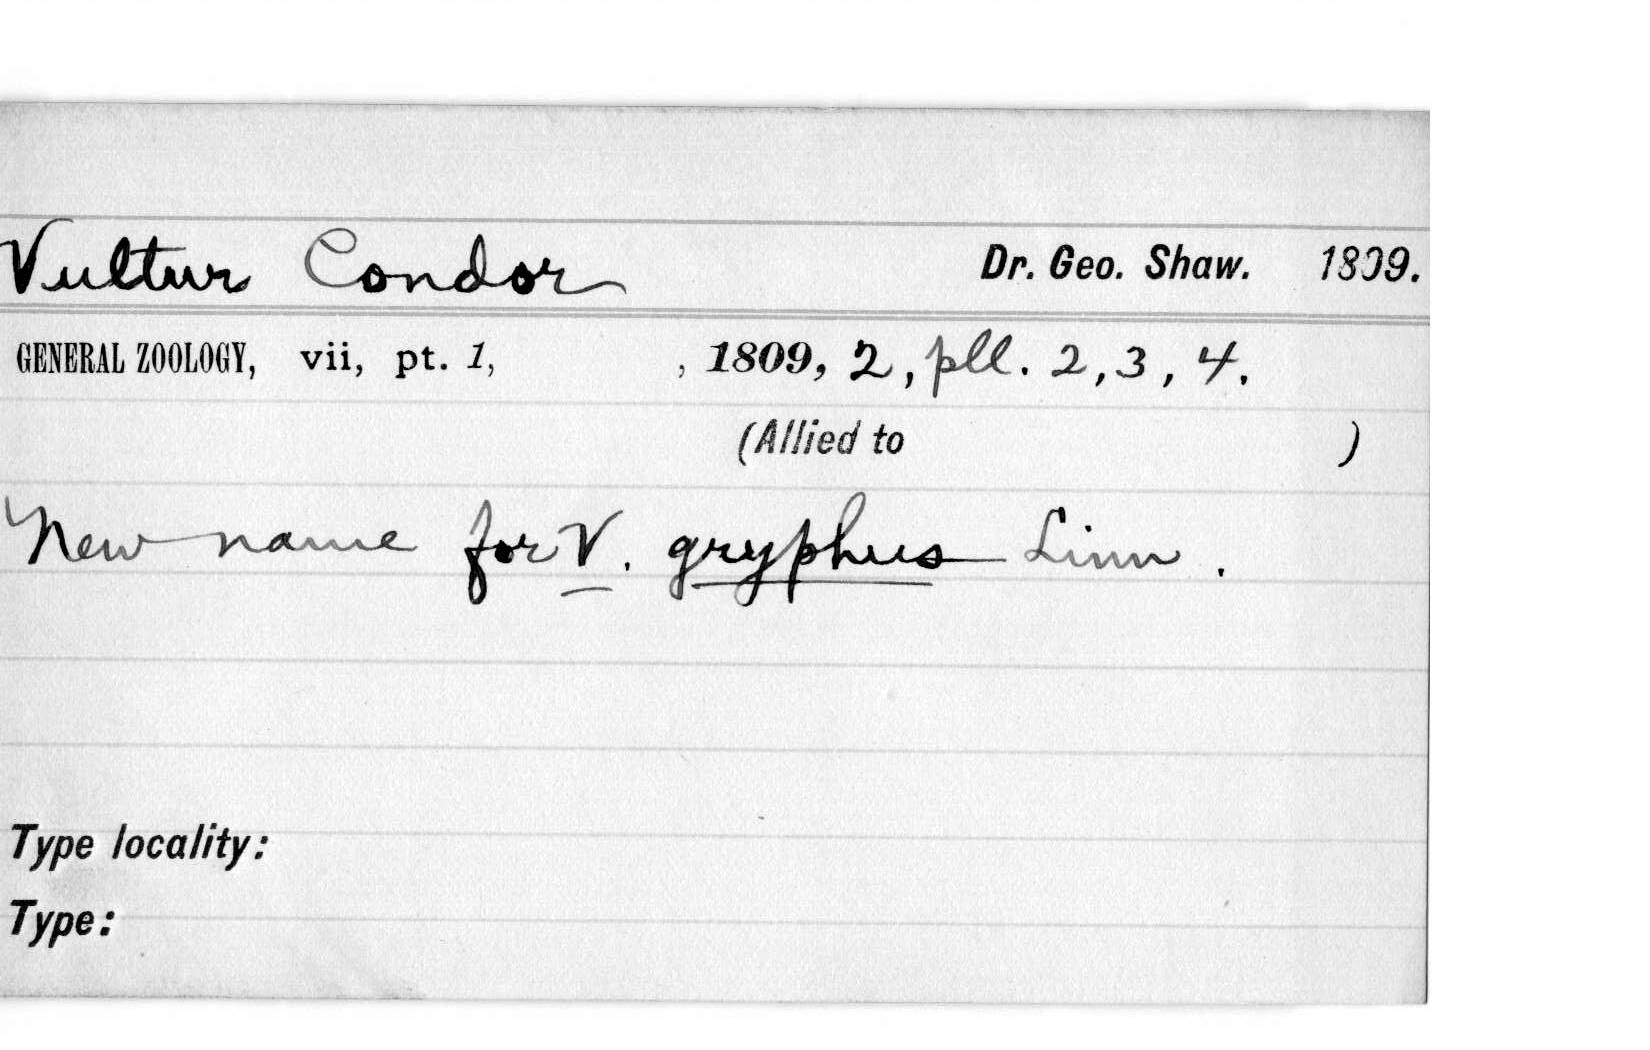 Vultur Condor Dr. Geo. Shaw. 1809.
GENERAL ZOOLOGY, vii, pt. 1, , 1809, 2, pll. 2, 3, 4.
(Allied to )
New name for V. gryphus Linn.
Type locality:
Type: